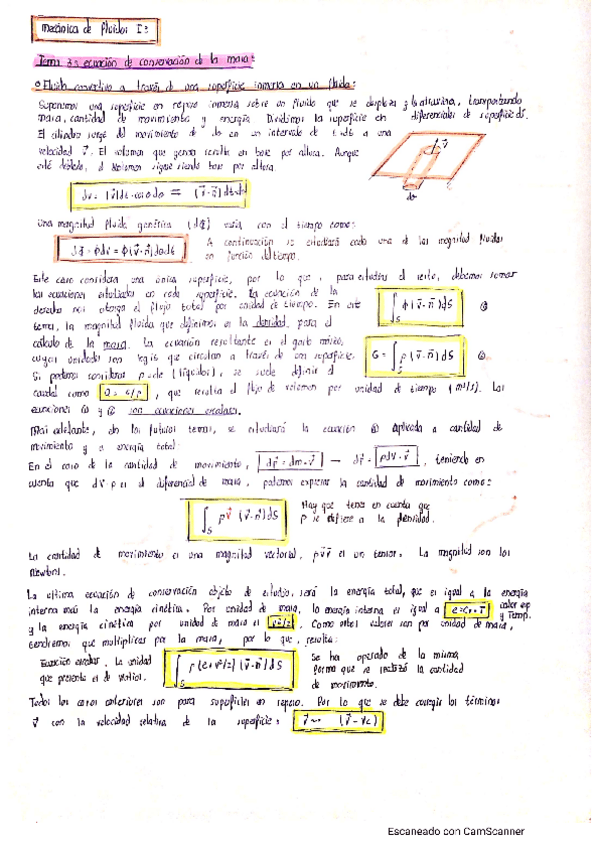 Mecánica de fluidos I:
Tema 3: ecuación de conservación de la masa:
Flujo convectivo a través de una superficie inmersa en un fluido:
Suponemos una superficie en reposo inmersa sobre un fluido que se desplaza y la atraviesa, transportando
masa, cantidad de movimiento y energía. Dividimos la superficie en diferenciales de superficie dS.
El cilindro surge del movimiento de do en un intervalo de t+dt a una
velocidad v⃗. El volumen que genera resulta en base por altura. Aunque
esté doblado, el volumen sigue siendo base por altura.
dv = |v⃗|dt·cosα do = (v⃗·n⃗)dt do
Una magnitud fluida genérica (dϕ) varía con el tiempo como:
dϕ = ϕdv = ϕ(v⃗·n⃗)dσdt
A continuación se estudiará cada una de las magnitud fluidas
en función del tiempo.
Este caso considera una única superficie, por lo que, para estudiar el resto, debemos sumar
las ecuaciones estudiadas en cada superficie. La ecuación de la
derecha nos otorga el flujo total por unidad de tiempo. En este
∫S ϕ(v⃗·n⃗)dS
tema, la magnitud fluida que definimos es la densidad para el
cálculo de la masa. La ecuación resultante es el gasto másico,
cuyas unidades son kg/s que circulan a través de una superficie.
G = ∫S ρ(v⃗·n⃗)dS
Si podemos considerar ρ=cte (líquidos), se suele definir el
caudal como Q = G/ρ, que resulta el flujo de volumen por unidad de tiempo (m³/s). Las
ecuaciones y son ecuaciones escalares.
Más adelante, en los futuros temas, se estudiará la ecuación aplicada a cantidad de
movimiento y a energía total.
En el caso de la cantidad de movimiento, dp⃗ = dm·v⃗ → dp⃗ = ρdv·v⃗, teniendo en
cuenta que dv·ρ es el diferencial de masa, podemos expresar la cantidad de movimiento como:
∫S ρv⃗ (v⃗·n⃗)dS
Hay que tener en cuenta que
ρ se refiere a la densidad.
La cantidad de movimiento es una magnitud vectorial, ρv⃗v⃗ es un tensor. La magnitud son los
Newton.
La última ecuación de conservación objeto de estudio, será la energía total, que es igual a la energía
interna más la energía cinética. Por unidad de masa, la energía interna es igual a e=Cv·T calor esp
y Temp.
y la energía cinética por unidad de masa es v²/2. Como estos valores son por unidad de masa,
tendremos que multiplicar por la masa, por lo que, resulta:
Ecuación escalar. La unidad
que presenta es de vatios.
∫S ρ(e+v²/2)(v⃗·n⃗)dS
Se ha operado de la misma
forma que se realizó la cantidad
de movimiento.
Todos los casos anteriores son para superficies en reposo. Por lo que se debe corregir los términos
v⃗ con la velocidad relativa de la superficie: v⃗ → (v⃗-vc)
Escaneado con CamScanner